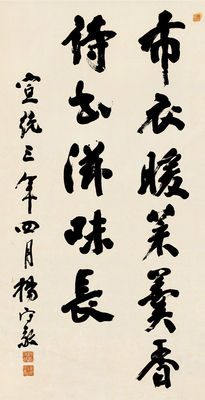 布衣暖菜羹香
詩書滋味長
宣統三年四月楊守敬